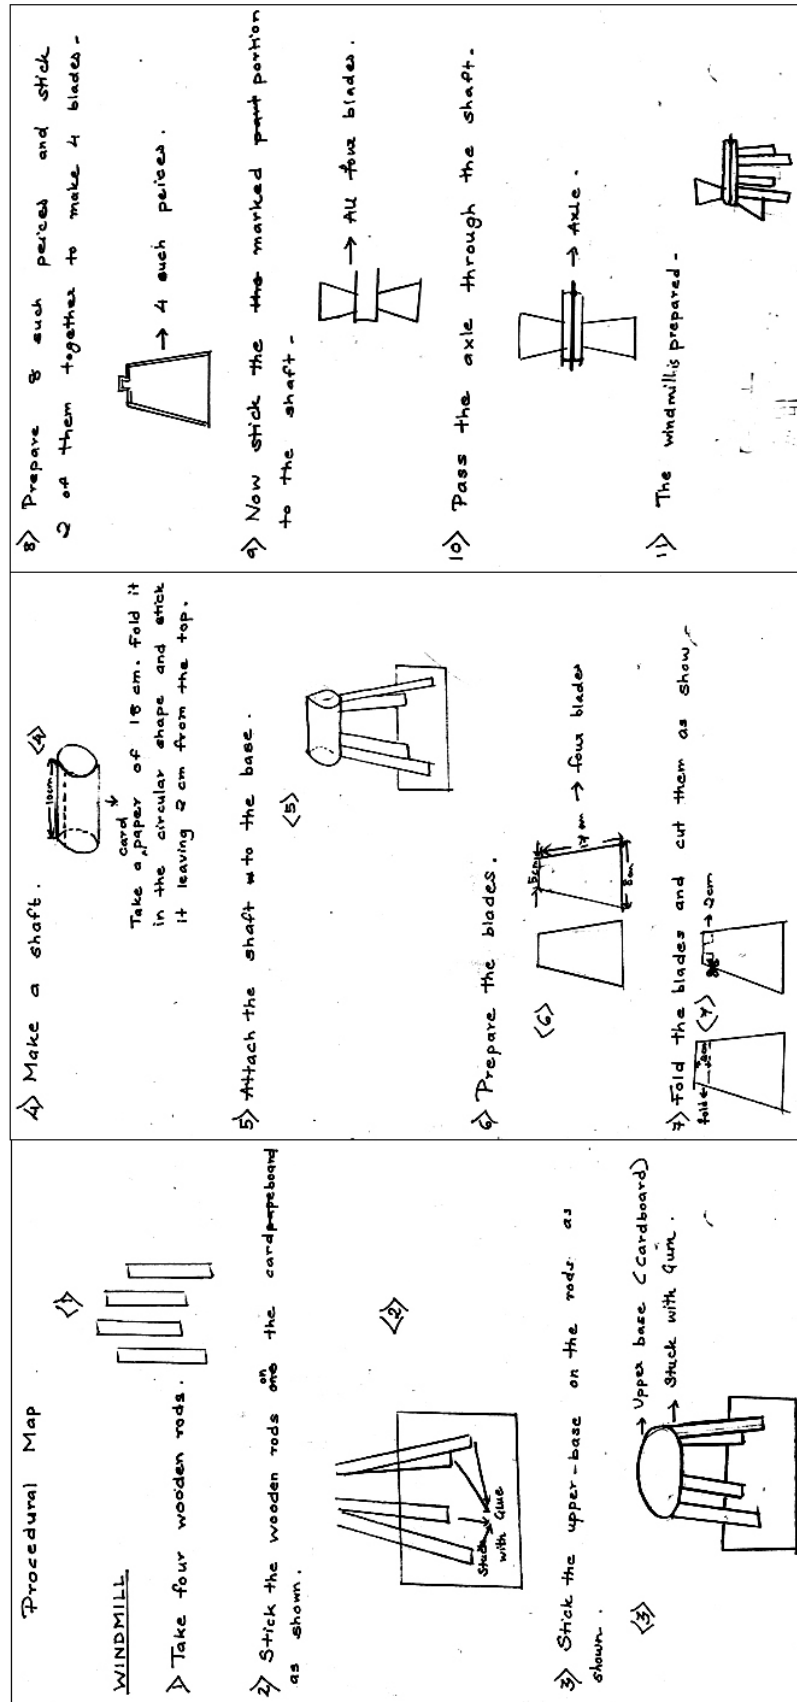 Procedural Map
WINDMILL
(1)
1) Take four wooden rods.
2) Stick the wooden rods on the cardboard
as shown.
(2)
Stuck
with Glue
3) Stick the upper-base on the rods as
shown.
(3)
→ Upper base (Cardboard)
→ Stuck with Gum.
4) Make a shaft.
(4)
10cm
card
Take a paper of 18 cm. Fold it
in the circular shape and stick
it leaving 2 cm from the top.
5) Attach the shaft to the base.
(5)
6) Prepare the blades.
(6)
5cm
17cm
8cm
→ four blades
7) Fold the blades and cut them as show,
fold
2cm
(7)
→ 2cm
8) Prepare 8 such peices and stick
2 of them together to make 4 blades-
→ 4 such peices.
9) Now stick the the marked part portion
to the shaft-
→ All four blades.
10) Pass the axle through the shaft.
→ Axle.
11) The windmill is prepared-